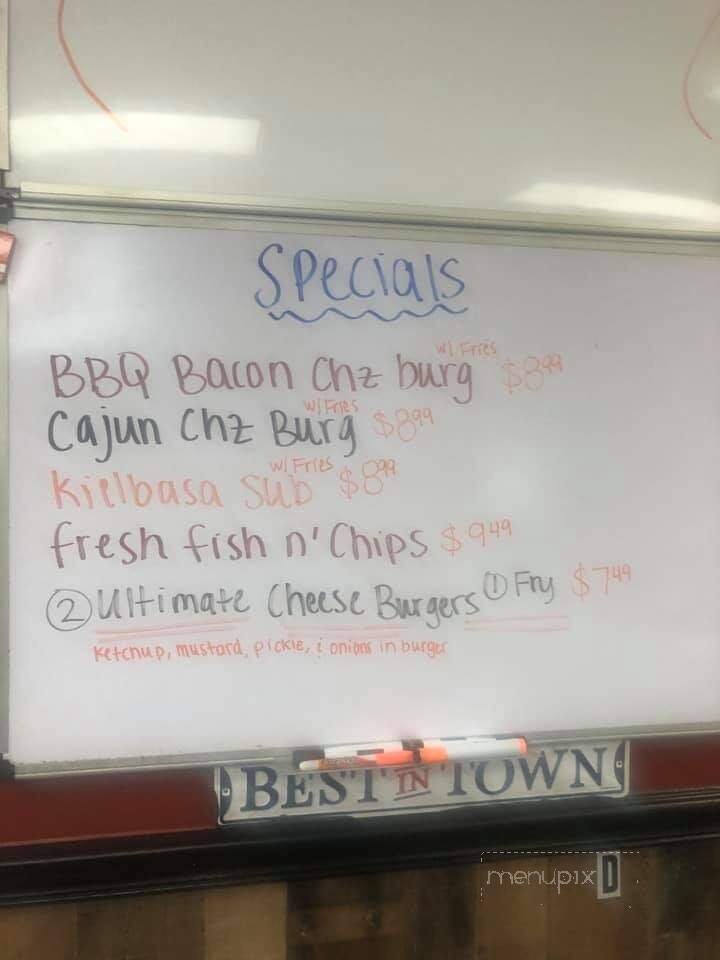 Specials
BBQ Bacon Chz burg w/ Fries $8.99
Cajun Chz Burg w/ Fries $8.99
Kielbasa Sub w/ Fries $8.99
fresh fish n' Chips $9.49
② Ultimate Cheese Burgers ① Fry $7.49
Ketchup, mustard, pickle, & onions in burger
BEST IN TOWN
menupix
D